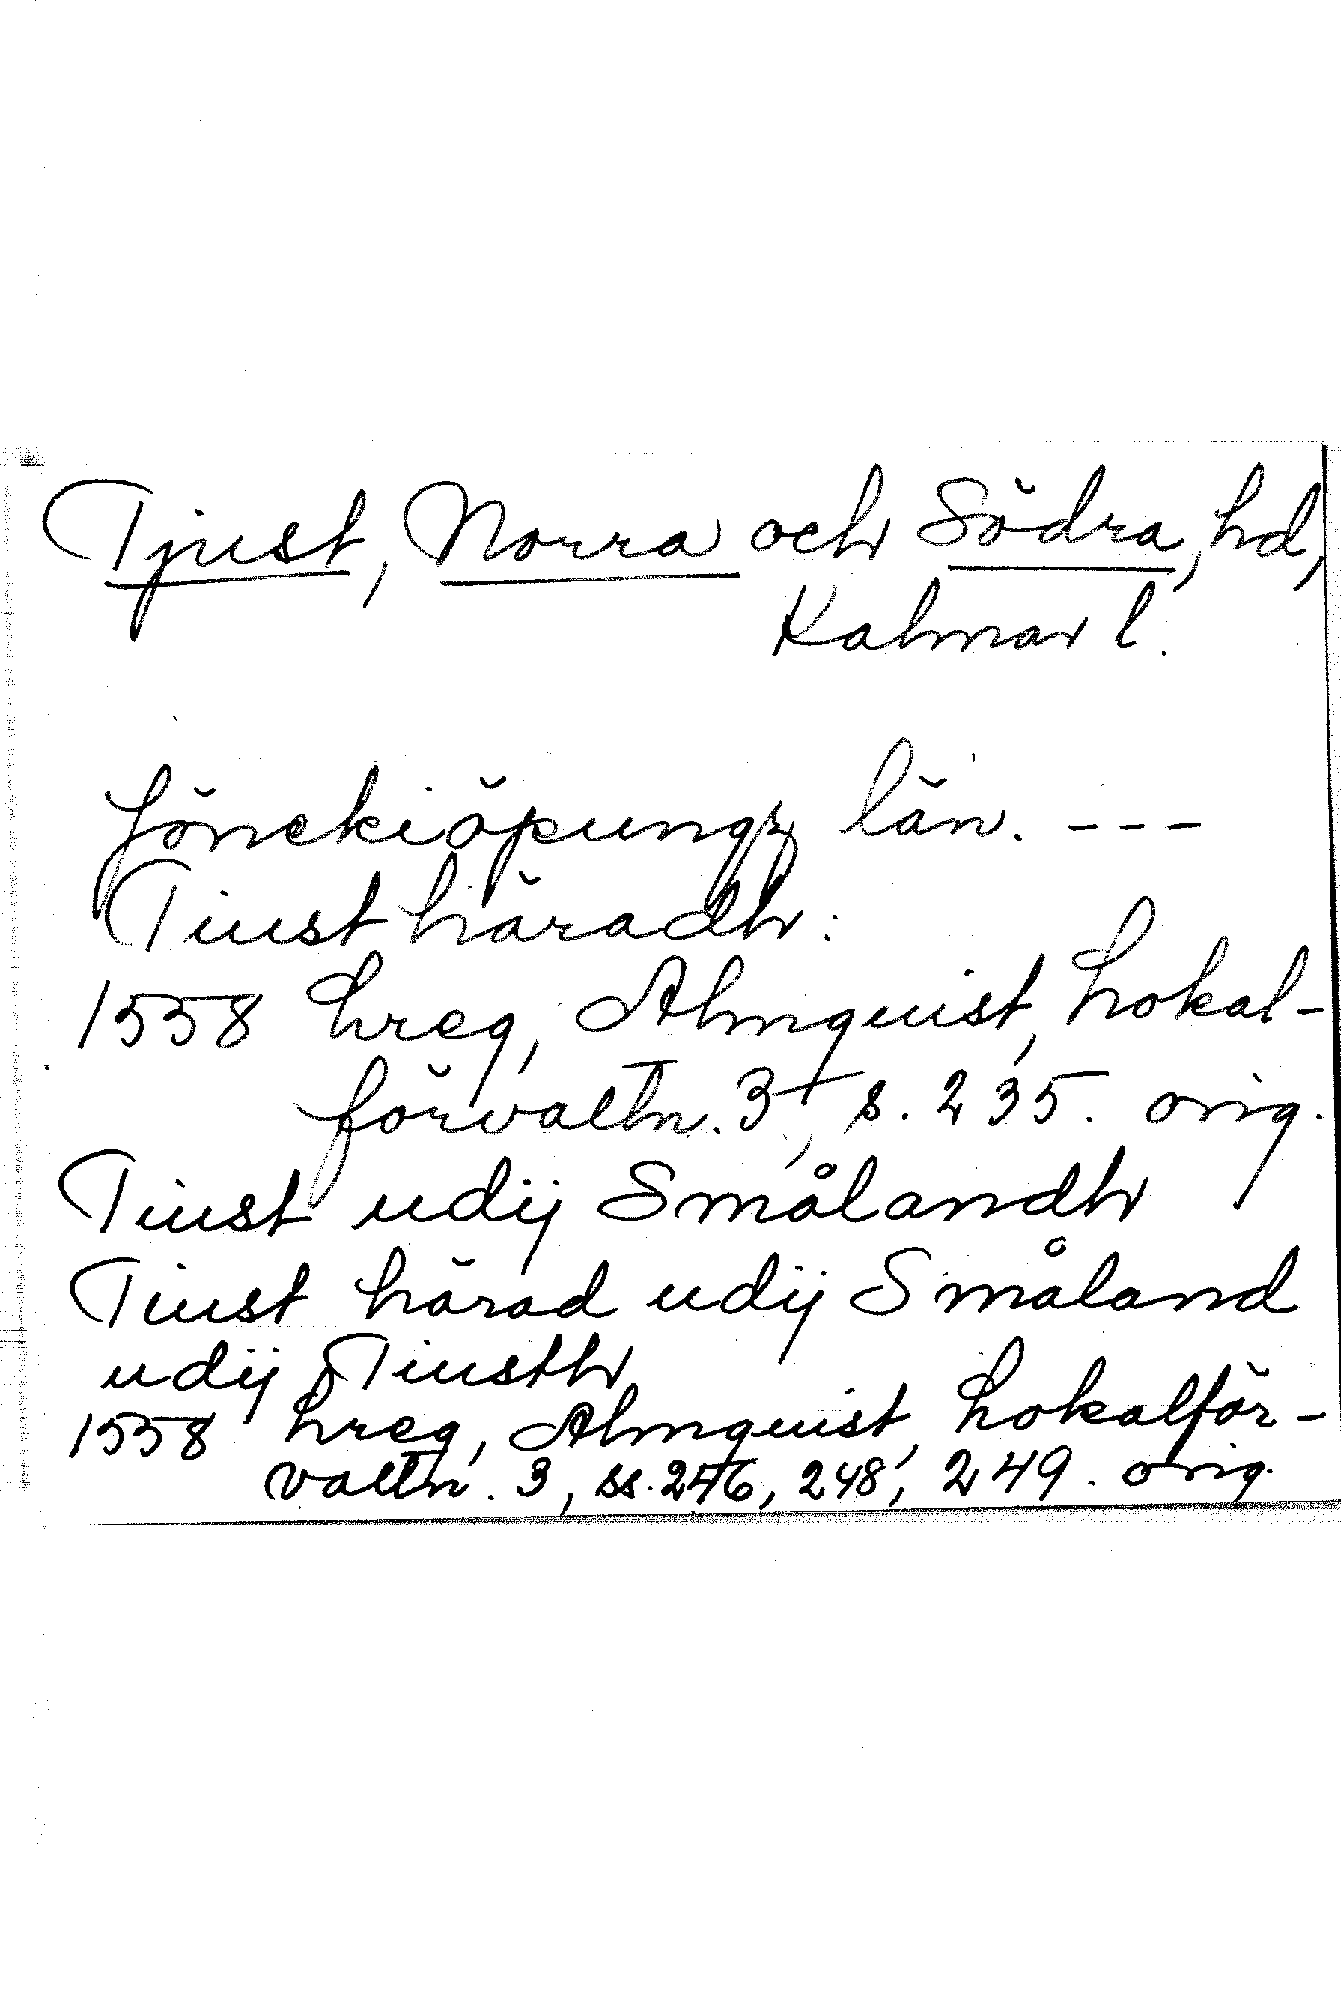 Tjust, Norra och Södra, hd,
Kalmar l.
Jönekiöpungz län. ---
Tiust häradh:
1558 Lreg, Almquist, Lokal-
förvaltn. 3, s. 235. orig.
Tiust udij Smålandh
Tiust härad udij Småland
udij Tiusth
1558 Lreg, Almquist, Lokalför-
valtn. 3, ss. 246, 248, 249. orig.